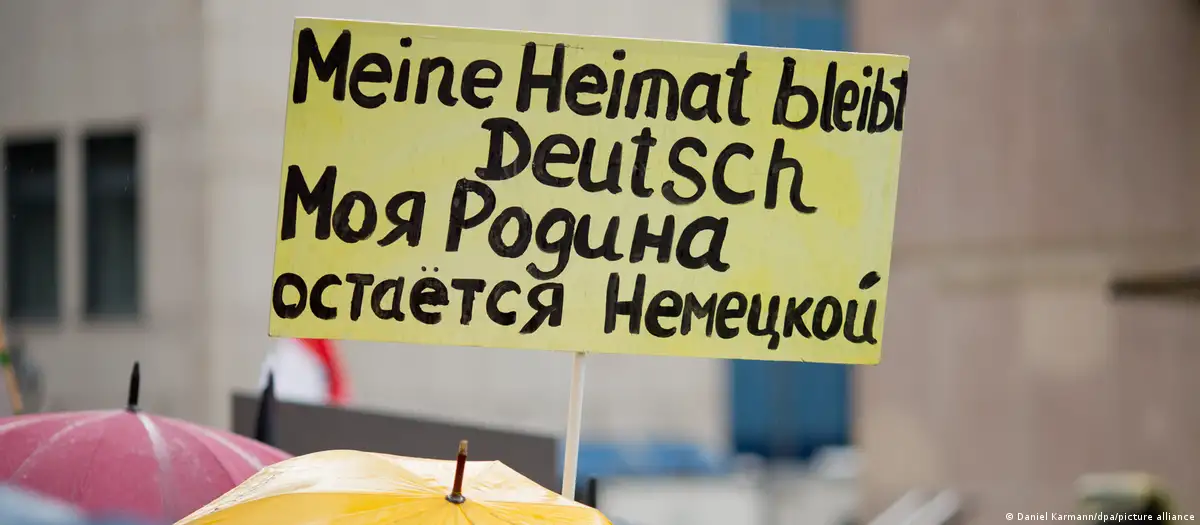 Meine Heimat bleibt
Deutsch
Моя Родина
остаётся Немецкой
© Daniel Karmann/dpa/picture alliance